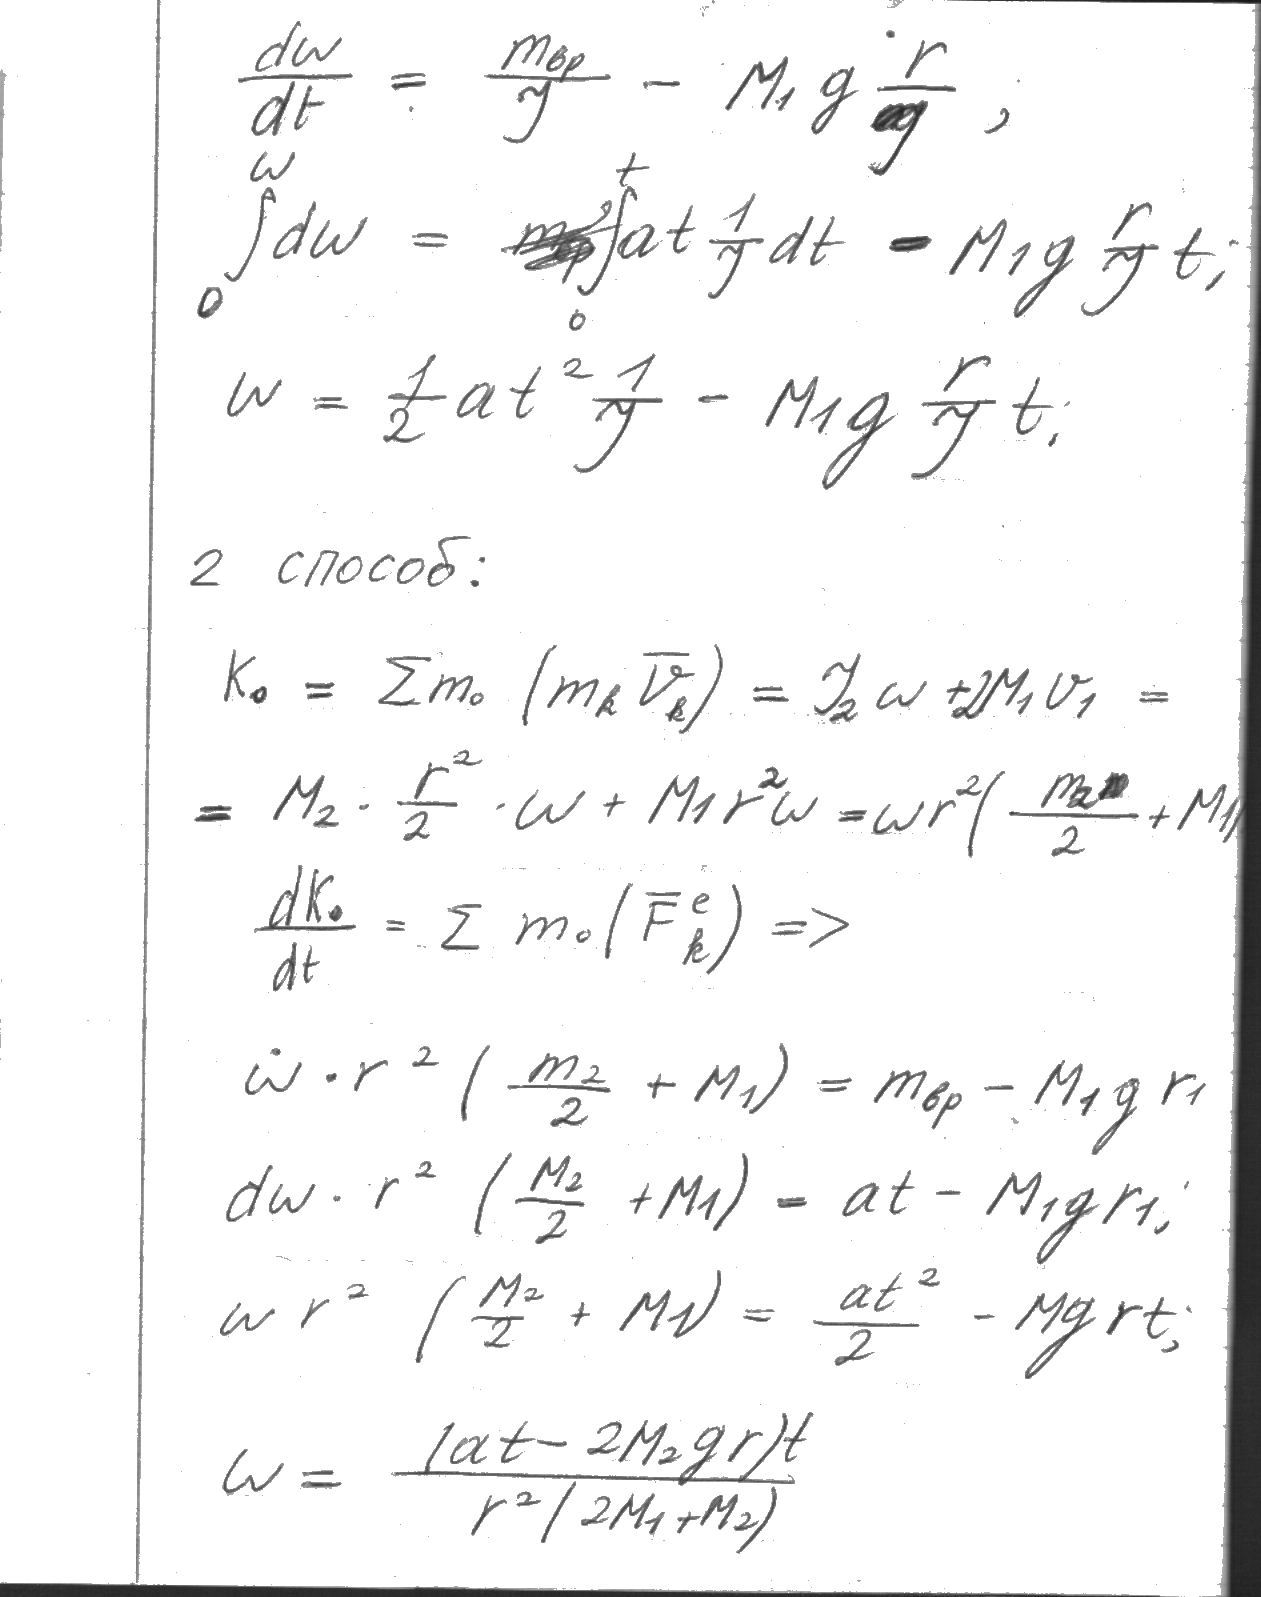 dω/dt = m вр/J − M₁g r/J ,
∫₀^ω dω = ∫₀^t at 1/J dt − M₁g r/J t;
ω = 1/2 at² 1/J − M₁g r/J t;
2 способ:
K₀ = Σm₀ (m_k V̄_k) = J₂ ω + M₁ V₁ =
= M₂ · r²/2 · ω + M₁ r² ω = ω r² (m₂/2 + M₁)
dK₀/dt = Σ m₀ (F̄_k^e) =>
ω̇ · r² (m₂/2 + M₁) = m вр − M₁ g r₁
dω · r² (M₂/2 + M₁) = at − M₁ g r₁;
ω r² (M₂/2 + M₁) = at²/2 − Mg rt;
ω = (at − 2M₂ gr)t / r² (2M₁ + M₂)